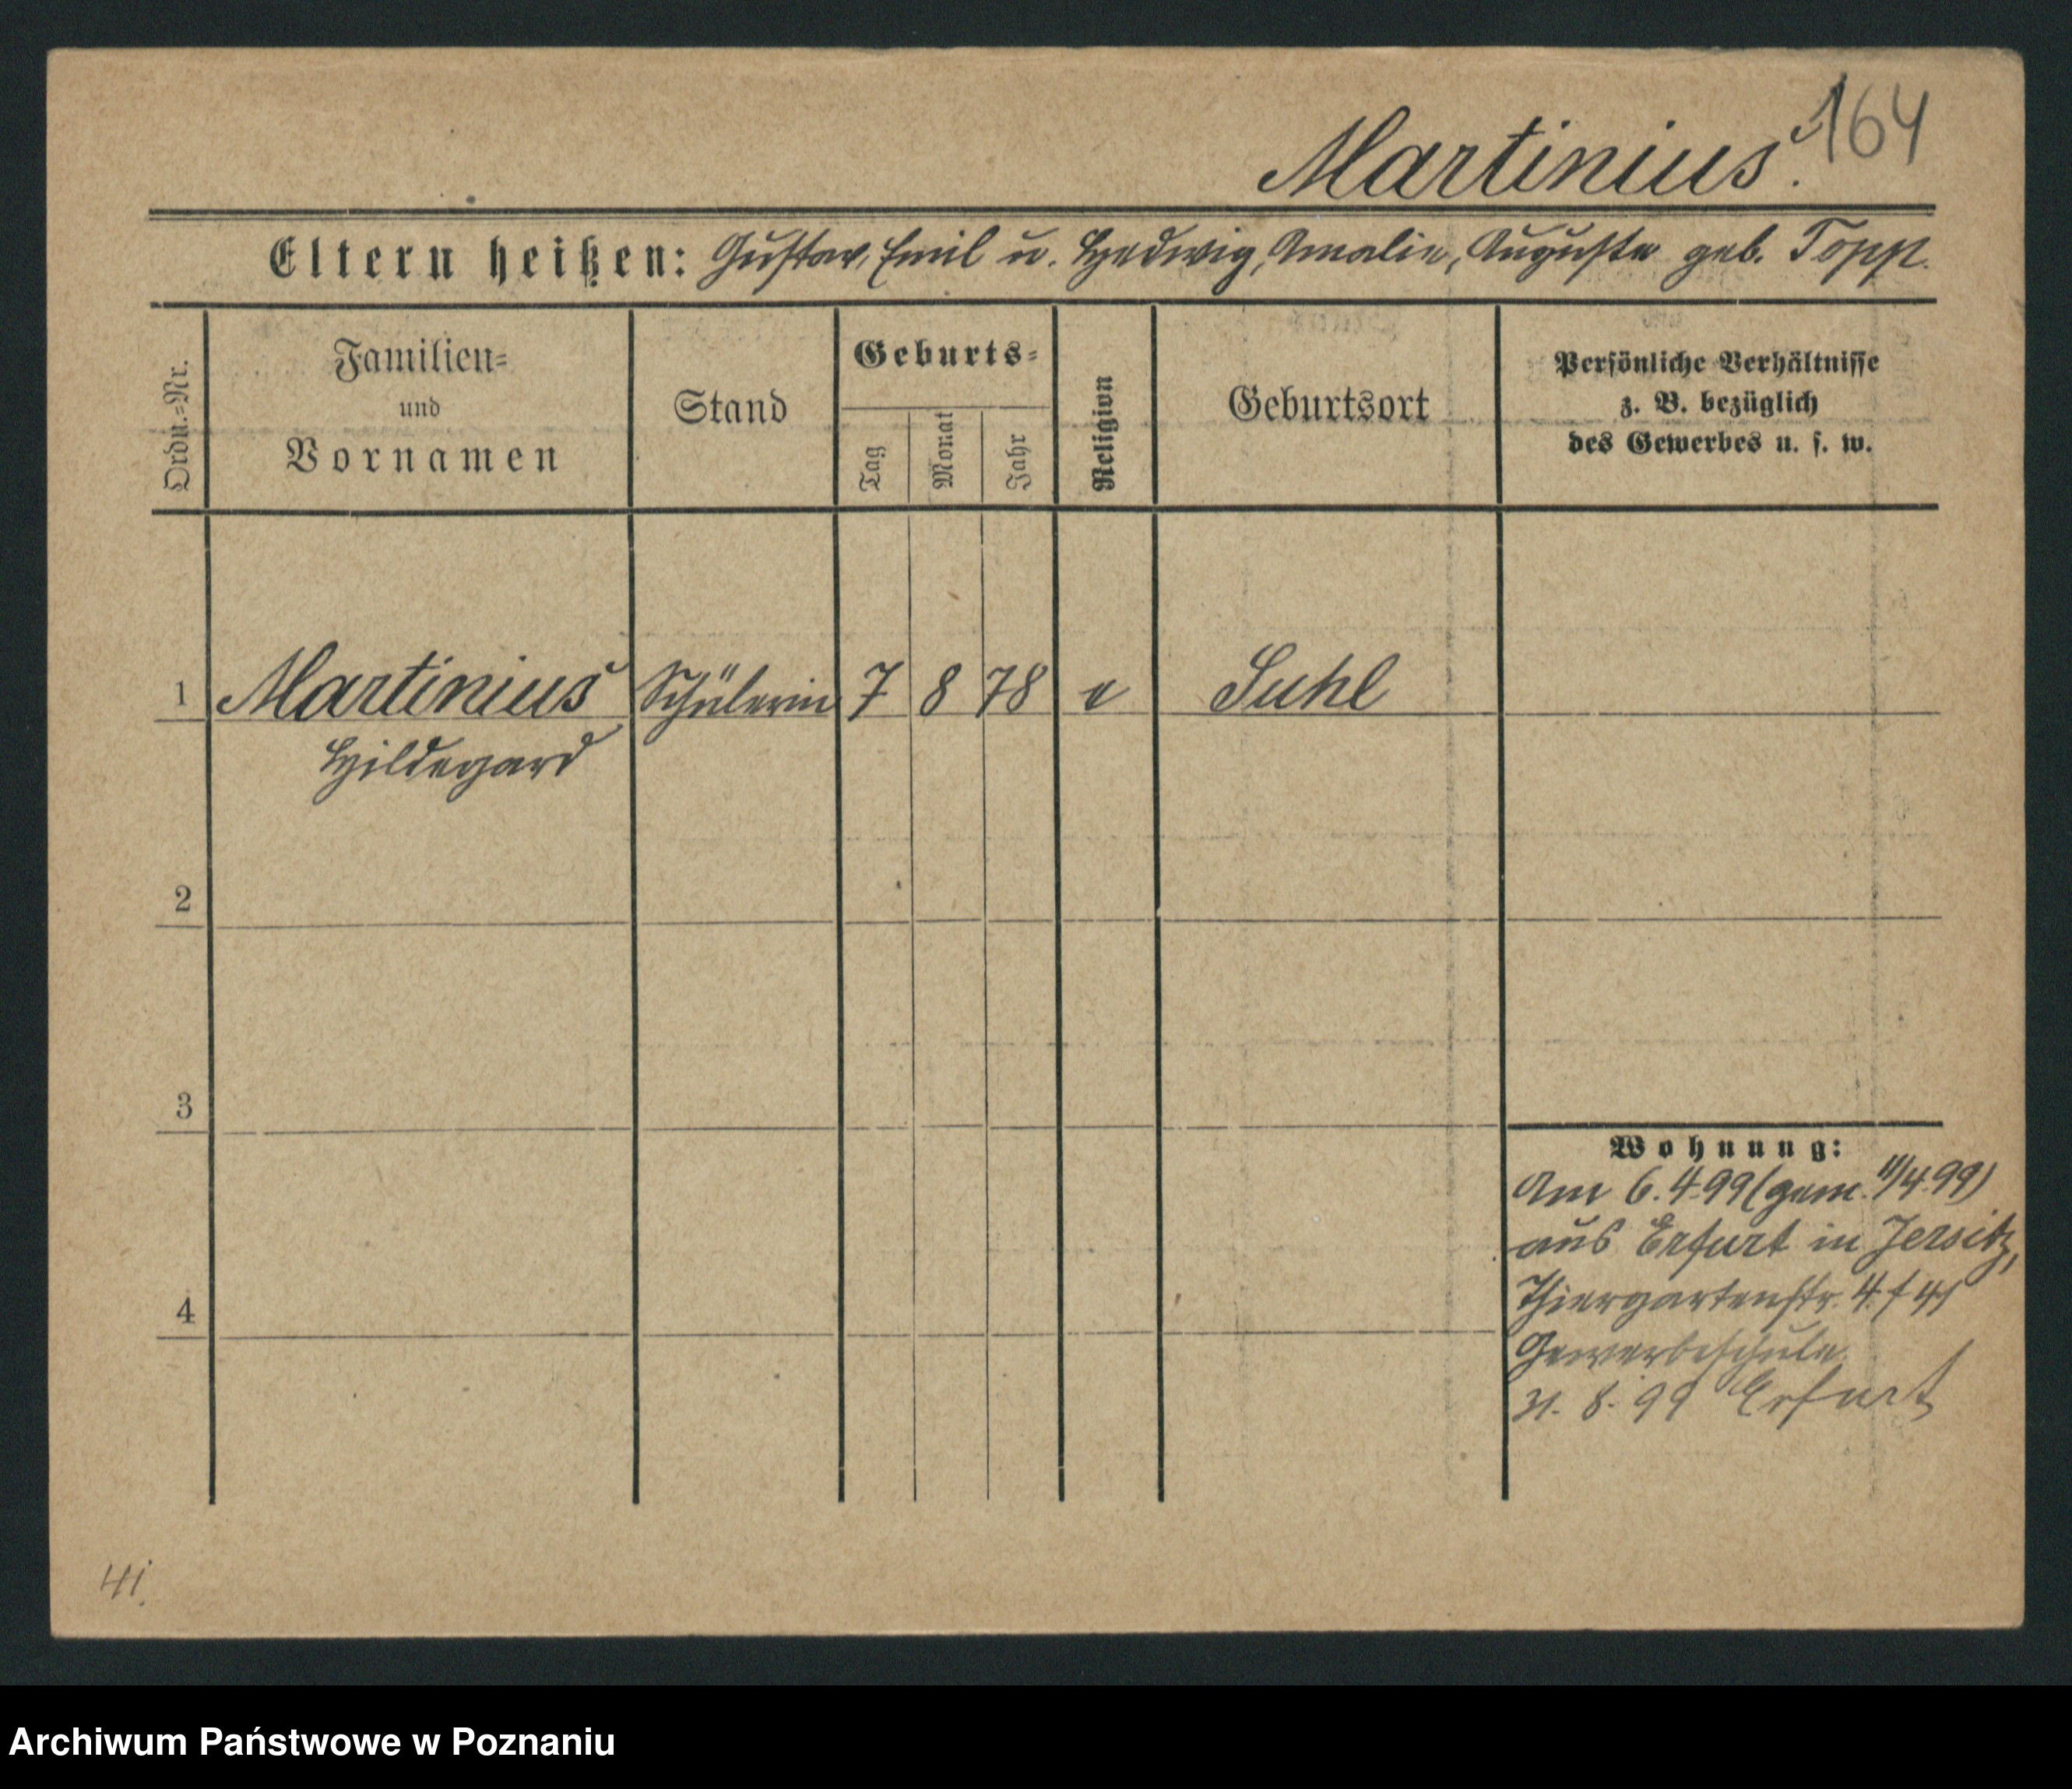 164
Martinius.
Eltern heißen: Gustav, Emil u. Hedwig, Amalie, Auguste geb. Topp.
Ordn.=Nr.
Familien=
und
Vornamen
Stand
Geburts=
Tag
Monat
Jahr
Religion
Geburtsort
Persönliche Verhältnisse
z. B. bezüglich
des Gewerbes u. s. w.
1 Martinius Schülerin 7 8 78 e Suhl
Hildegard
2
3
4
Wohnung:
Am 6.4.99 (gem. 11/4.99)
aus Erfurt in Jersitz,
Thiergartenstr. 4
Gewerbeschule
31. 8. 99 Erfurt
41.
Archiwum Państwowe w Poznaniu